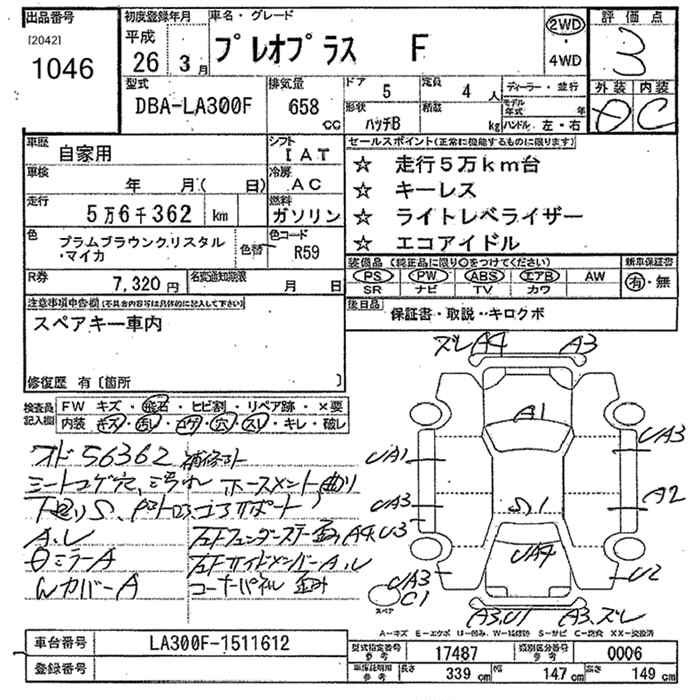 出品番号
[2042]
1046
初度登録年月
平成
26 3月
車名・グレード
プレオプラス F
2WD
・
4WD
評価点
3
型式
DBA-LA300F
排気量
658 CC
ドア 5
定員 4 人
形状 ハッチB
積載 kg
ディーラー・並行
モデル年式 年
ハンドル 左・右
外装 内装
D C
車歴
自家用
シフト
IAT
車検
年 月( 日)
冷房
AC
走行
5万6千362 km
燃料
ガソリン
色
プラムブラウンクリスタル
・マイカ
色替
色コード
R59
R券
7,320円
名変通知期限
月 日
セールスポイント(正常に機能するものに限ります)
☆ 走行5万km台
☆ キーレス
☆ ライトレベライザー
☆ エコアイドル
装備品 (純正品に限り○をつけてください)
PS PW ABS エアB AW
SR ナビ TV カワ
新車保証書
有・無
後日品
保証書・取説・・キロクボ
注意事項申告欄(不具合内容等は具体的に記入して下さい)
スペアキー車内
修復歴 有〔箇所 〕
検査員記入欄
FW キズ・飛石・ヒビ割・リペア跡・×要
内装 キズ・汚レ・コゲ・穴・スレ・キレ・破レ
オド 56362 補修マト
シートコゲ穴、ミゾ汚れ ホースメント曲り
下廻りS、
A.レ
ミラーA
Wカバー A
左Fサイドメンバー A.レ
コーナーパネル 歪み
ズレ A4 A3
A1
UA1 UA3
UA3 A2
S1
U3
UA4
UA3 U2
C1
スペア
A3.U1 A3.ズレ
A-キズ E-エクボ U-凹み W-補修跡 S-サビ C-腐食 XX-交換済
車台番号 LA300F-1511612
登録番号
型式指定番号 参考 17487
類別区分番号 参考 0006
車体証明用 参考 長さ 339 cm 幅 147 cm 高さ 149 cm